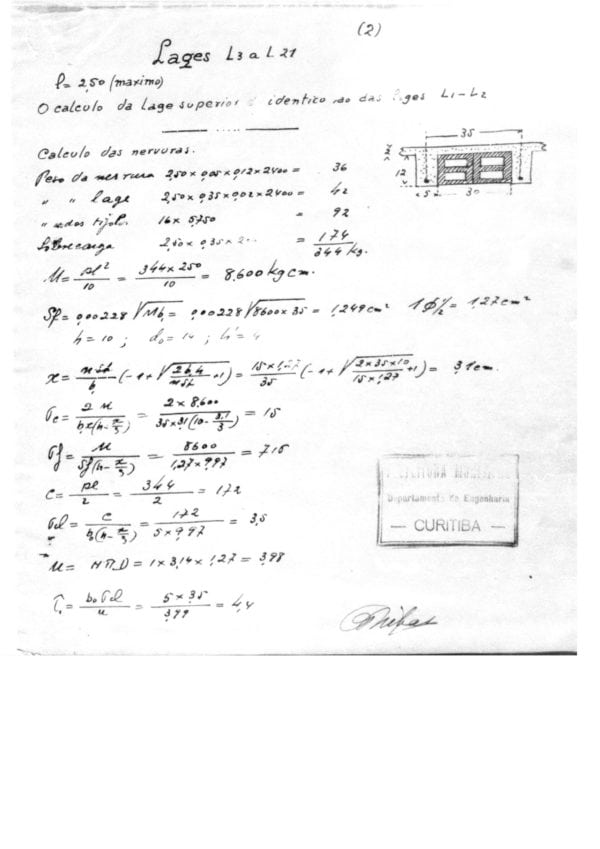 (2)
Lages L3 a L21
l = 2,50 (maximo)
O calculo da Lage superior é identico ao das lages L1-L2
Calculo das nervuras.
35
2
12
5
30
Peso da nervura 2,50 x 0,05 x 0,12 x 2400 = 36
" " lage 2,50 x 0,35 x 0,02 x 2400 = 42
" " dos tijol. 16 x 5,750 = 92
Sobrecarga 2,50 x 0,35 x 2 = 174
344 kg.
M = pl²/10 = 344 x 250/10 = 8,600 kg cm.
Sf = 0,00228 √Mb = 0,00228 √8600 x 35 = 1,249 cm² 1 Ø ½" = 1,27 cm²
h = 10 ; do = 14 ; h' = 4
x = n Sf/b (-1+√(2bh/nSf +1)) = 15 x 1,27/35 (-1+√(2 x 35 x 10/15 x 1,27 +1)) = 3,1 cm.
σc = 2M/bx(h-x/3) = 2 x 8,600/35 x 3,1(10-3,1/3) = 15
σf = M/Sf(h-x/3) = 8600/1,27 x 9,97 = 715
C = pl/2 = 344/2 = 172
σcl = C/b(h-x/3) = 172/5 x 9,97 = 3,5
u = nπD = 1 x 3,14 x 1,27 = 3,98
τ1 = bo σcl/u = 5 x 3,5/3,99 = 4,4
PREFEITURA MUNICIPAL
Departamento de Engenharia
— CURITIBA —